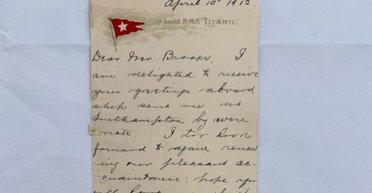 April 10th 1912.
On board R.M.S. TITANIC.
Dear Mr. Brooks, I
am delighted to receive
your greetings aboard
ship sent me at
Southampton by were
I too look
forward to again renew
ing our pleasant ac-
quaintance: hope you
will